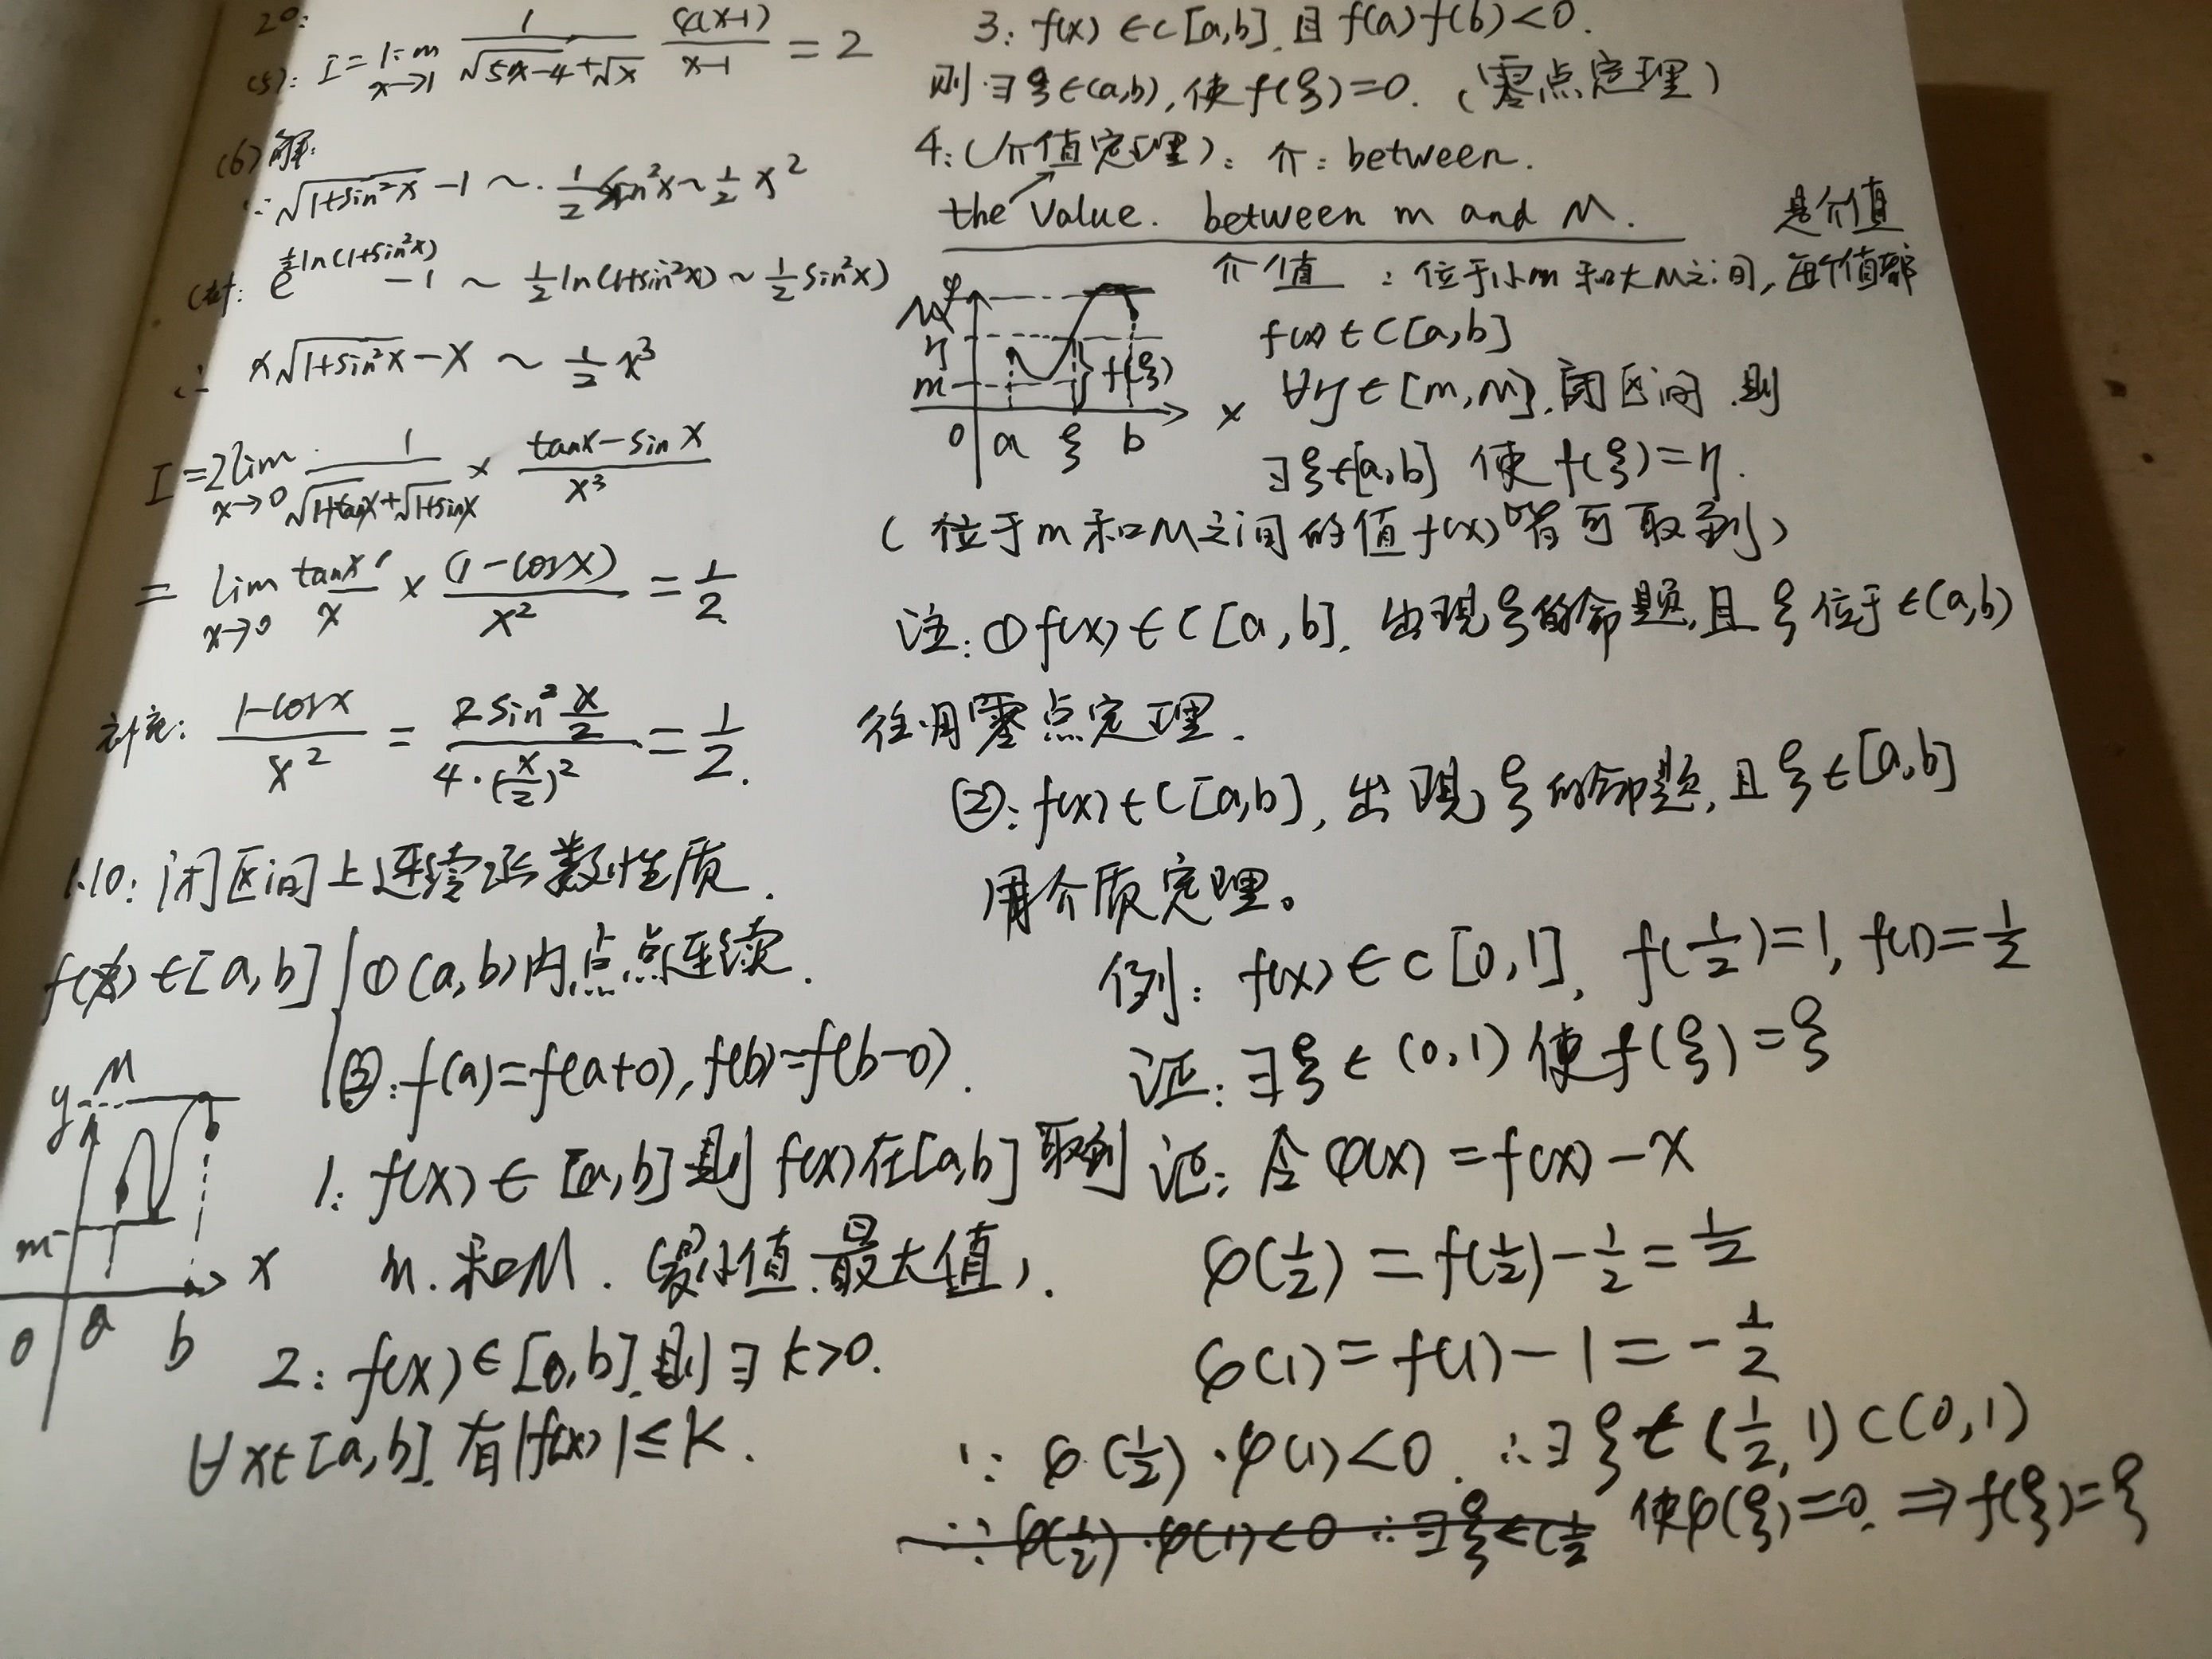 2°:
(5): I = lim x→1 1/(√(5x-4)+√x) (4(x-1))/(x-1) = 2
(6) 解:
∵ √(1+sin²x) -1 ~ 1/2 sin²x ~ 1/2 x²
e^(1/2 ln(1+sin²x)) -1 ~ 1/2 ln(1+sin²x) ~ 1/2 sin²x)
∴ x√(1+sin²x) - x ~ 1/2 x³
I = 2lim x→0 1/(√(1+tanx)+√(1+sinx)) × (tanx-sinx)/x³
= lim x→0 tanx/x × (1-cosx)/x² = 1/2
补充: (1-cosx)/x² = (2sin² x/2)/(4·(x/2)²) = 1/2.
1.10: 闭区间上连续函数性质.
f(x) ∈[a,b] ①(a,b)内点点连续.
②: f(a)=f(a+0), f(b)=f(b-0).
y M
m
x
0 a b
1: f(x) ∈ [a,b] 则 f(x)在[a,b] 取到
m. 和M. (最小值.最大值).
2: f(x)∈[a,b].则∃ k>0.
∀x∈[a,b]. 有|f(x)|≤k.
3: f(x) ∈C[a,b].且 f(a)f(b)<0.
则∃ξ∈(a,b), 使 f(ξ)=0. (零点定理)
4:(介值定理): 介: between.
the value. between m and M.
是介值
介值 : 位于小m和大M之间,每个值都
y
M
η
m
f(ξ)
0 a ξ b x
f(x)∈C[a,b]
∀η∈[m,M].闭区间.则
∃ξ∈[a,b] 使 f(ξ)=η.
(位于m和M之间的值f(x)皆可取到)
注: ①f(x)∈C[a,b]. 出现ξ的命题,且ξ位于∈(a,b)
往用零点定理.
②: f(x)∈C[a,b], 出现ξ的命题,且ξ∈[a,b]
用介质定理。
例: f(x)∈C[0,1], f(1/2)=1, f(1)=1/2
证: ∃ξ∈(0,1) 使f(ξ)=ξ
证: 令φ(x)=f(x)-x
φ(1/2)=f(1/2)-1/2=1/2
φ(1)=f(1)-1=-1/2
∵ φ(1/2)·φ(1)<0. ∴∃ξ∈(1/2,1)⊂(0,1)
∵ φ(1/2)·φ(1)<0 ∴∃ξ∈(1/2
使φ(ξ)=0. ⇒f(ξ)=ξ